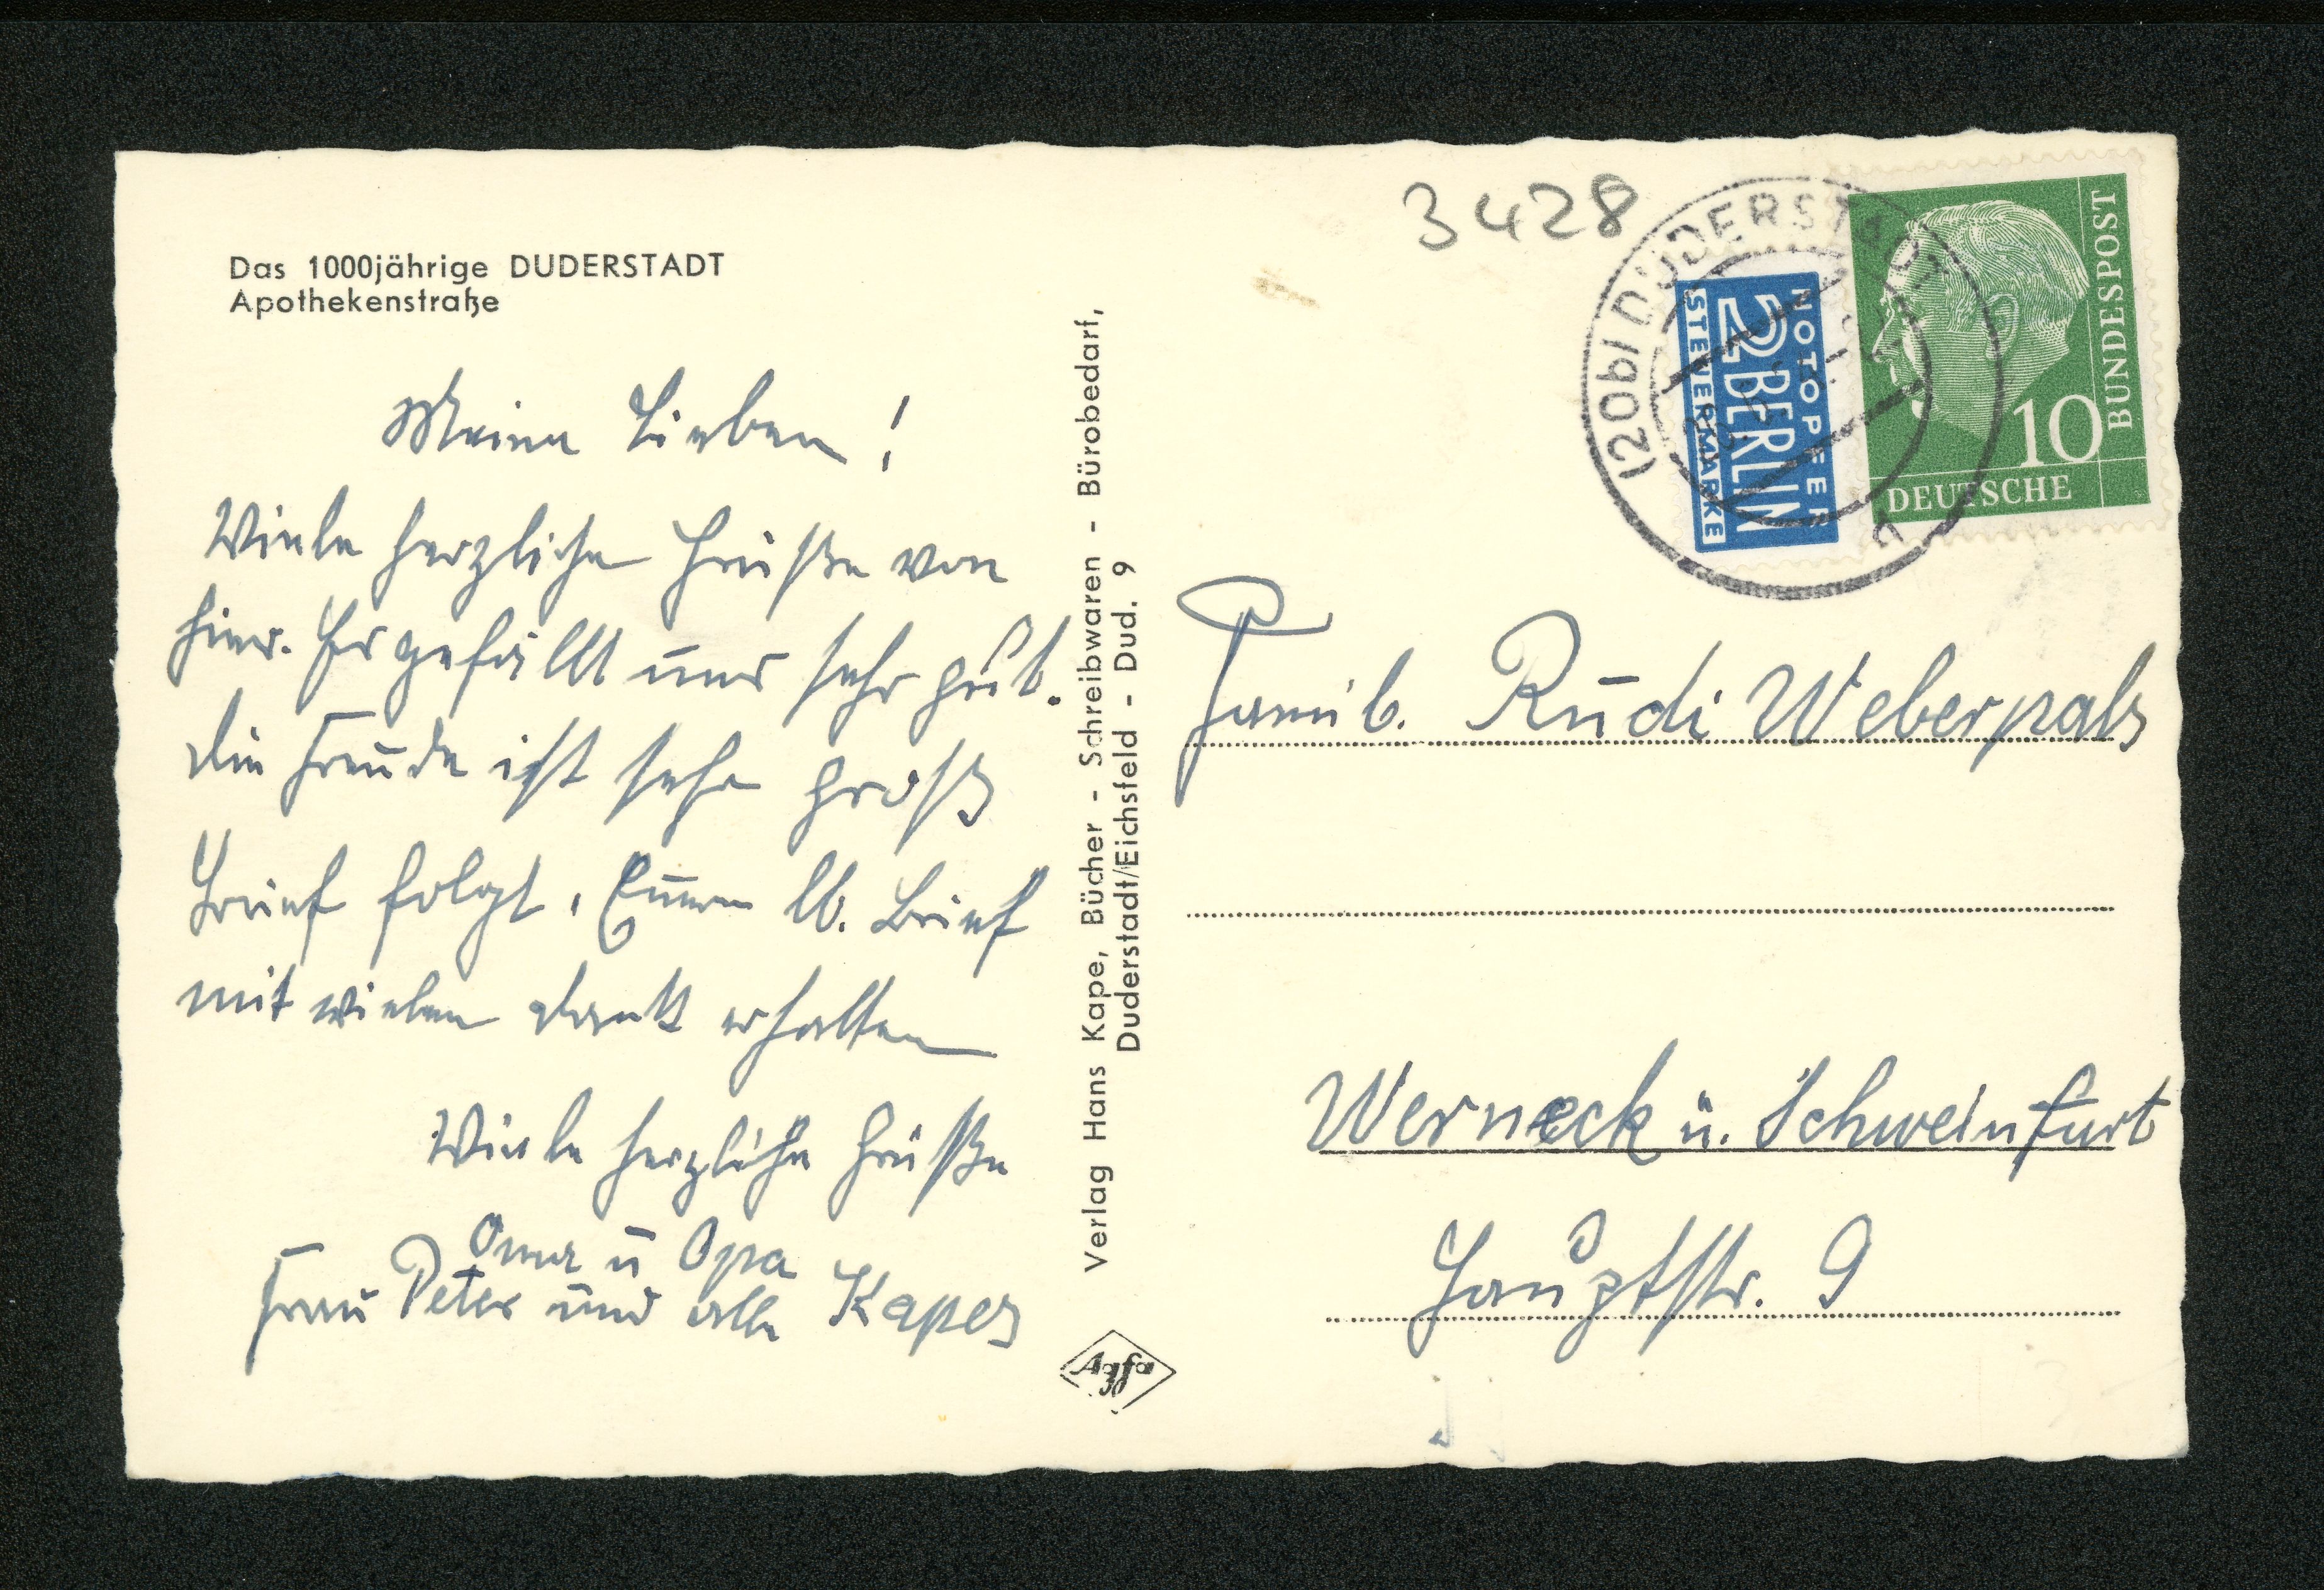 Das 1000jährige DUDERSTADT
Apothekenstraße
Meine Lieben!
Viele herzliche Grüße von
hier. Es gefällt uns sehr gut.
die Freude ist sehr groß
Brief folgt. Euern lb. Brief
mit vielen dank erhalten
Viele herzliche Grüße
Oma u Opa
Frau Peter und alle Kapes
Verlag Hans Kape, Bücher - Schreibwaren - Bürobedarf,
Duderstadt/Eichsfeld - Dud. 9
Agfa
3428
(20b) DUDERSTADT
NOTOPFER
2 BERLIN
STEUERMARKE
10
DEUTSCHE
BUNDESPOST
Famil. Rudi Weberpals
Werneck u. Schweinfurt
Hauptstr. 9